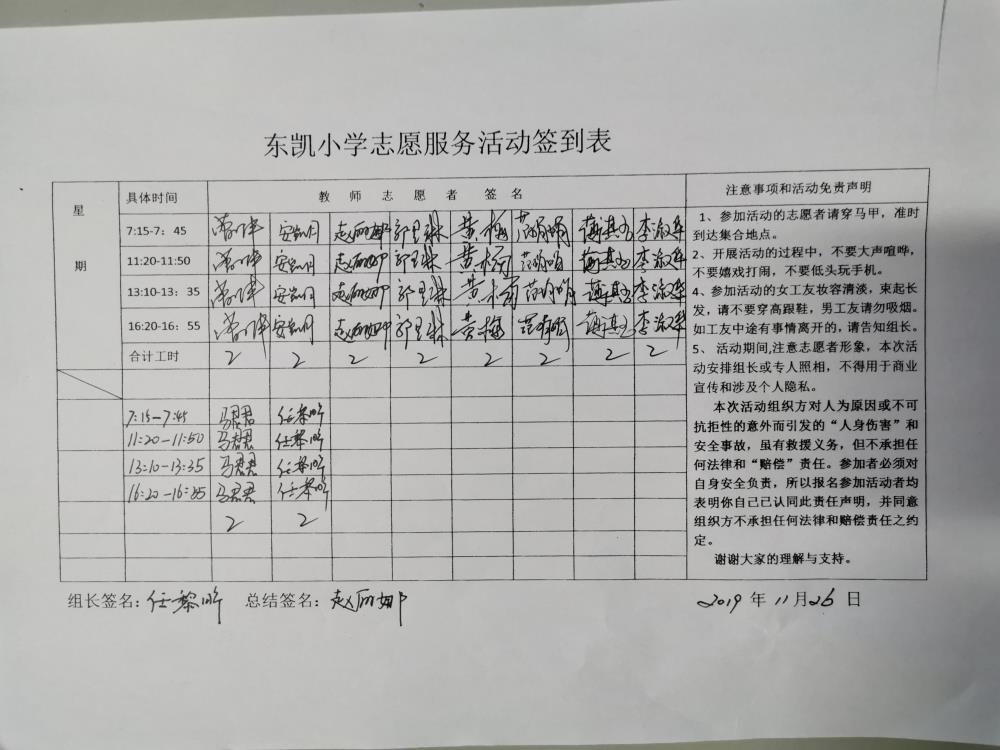 东凯小学志愿服务活动签到表
星期
具体时间 教师志愿者 签名
7:15-7:45 安凯月 赵丽娜 黄梅 李淑华
11:20-11:50 安凯月 赵丽娜 黄梅 李淑华
13:10-13:35 安凯月 赵丽娜 黄梅 李淑华
16:20-16:55 安凯月 赵丽娜 黄梅 李淑华
合计工时 2 2 2 2 2 2 2 2
7:15-7:45 马君君 任黎明
11:20-11:50 马君君 任黎明
13:10-13:35 马君君 任黎明
16:20-16:55 马君君 任黎明
2 2
注意事项和活动免责声明
1、参加活动的志愿者请穿马甲，准时
到达集合地点。
2、开展活动的过程中，不要大声喧哗，
不要嬉戏打闹，不要低头玩手机。
4、参加活动的女工友妆容清淡，束起长
发，请不要穿高跟鞋，男工友请勿吸烟。
如工友中途有事情离开的，请告知组长。
5、 活动期间,注意志愿者形象，本次活
动安排组长或专人照相，不得用于商业
宣传和涉及个人隐私。
本次活动组织方对人为原因或不可
抗拒性的意外而引发的“人身伤害”和
安全事故，虽有救援义务，但不承担任
何法律和“赔偿”责任。参加者必须对
自身安全负责，所以报名参加活动者均
表明你自己已认同此责任声明，并同意
组织方不承担任何法律和赔偿责任之约
定。
谢谢大家的理解与支持。
组长签名：任黎明 总结签名：赵丽娜 2019 年 11 月 26 日